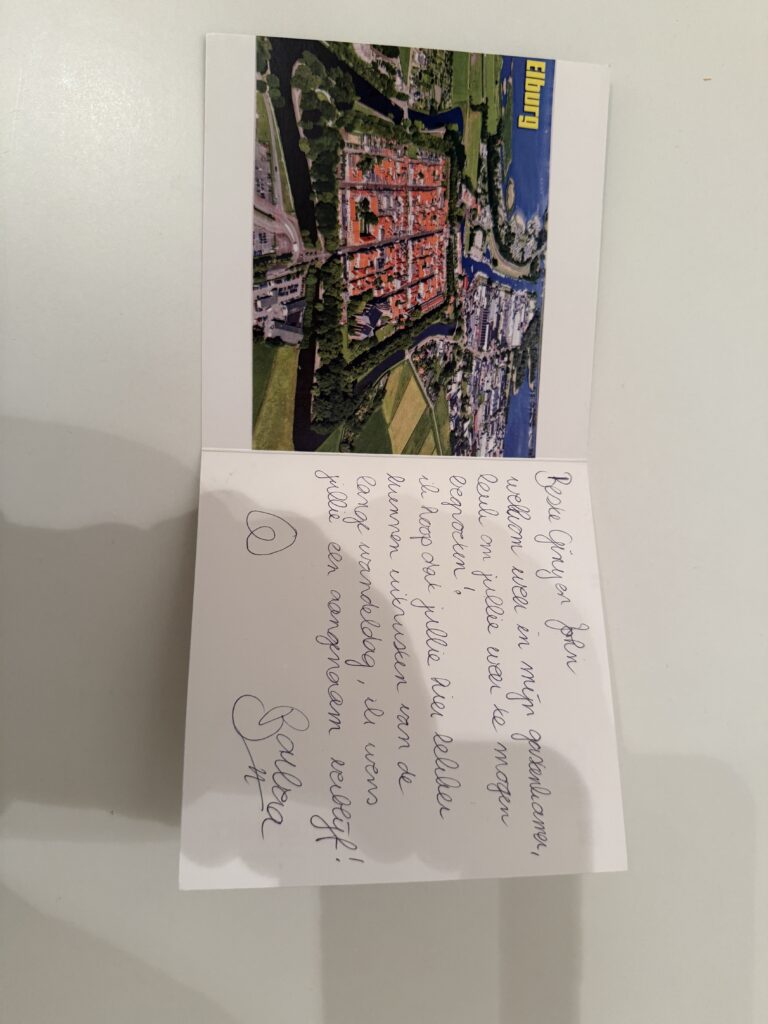 Elburg
Beste Giny en John
welkom weer in mijn gastenkamer,
leuk om jullie weer te mogen
begroeten!
ik hoop dat jullie hier lekker
kunnen uitrusten van de
lange wandeldag, ik wens
jullie een aangenaam verblijf!
Barbara